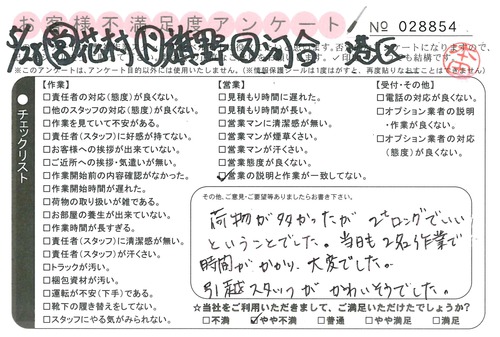 お客様不満足度アンケート
№ 028854
5/28 営 花村 旗野 河合 港区
※このアンケートは、アンケート目的以外には使用いたしません。(※情報保護シールは1度はがすと、再度貼りなおすことはできません)
チェックリスト
【作業】
□責任者の対応(態度)が良くない。
□他のスタッフの対応(態度)が良くない。
□作業を見ていて不安がある。
□責任者(スタッフ)に好感が持てない。
□お客様への挨拶が出来ていない。
□ご近所への挨拶・気遣いが無い。
□作業開始前の内容確認がなかった。
□作業開始時間が遅れた。
□荷物の取り扱いが雑である。
□お部屋の養生が出来ていない。
□作業時間が長すぎる。
□責任者(スタッフ)に清潔感が無い。
□責任者(スタッフ)が汗くさい。
□トラックが汚い。
□梱包資材が汚い。
□運転が不安(下手)である。
□靴下の履き替えをしてない。
□スタッフにやる気がみられない。
【営業】
□見積もり時間に遅れた。
□見積もり時間が長い。
□営業マンに清潔感が無い。
□営業マンが煙草くさい。
□営業マンが汗くさい。
□営業態度が良くない。
☑営業の説明と作業が一致してない。
【受付・その他】
□電話の対応が良くない。
□オプション業者の説明
・作業が良くない。
□オプション業者の対応
(態度)が良くない。
その他、ご意見・ご要望等ありましたらお書き下さい。
荷物が多かったが 2tロングでいい
ということでした。当日も2名作業で
時間がかかり、大変でした。
引越スタッフが かわいそうでした。
☆当社をご利用いただきまして、ご満足いただけたでしょうか?
□不満 ☑やや不満 □普通 □やや満足 □満足